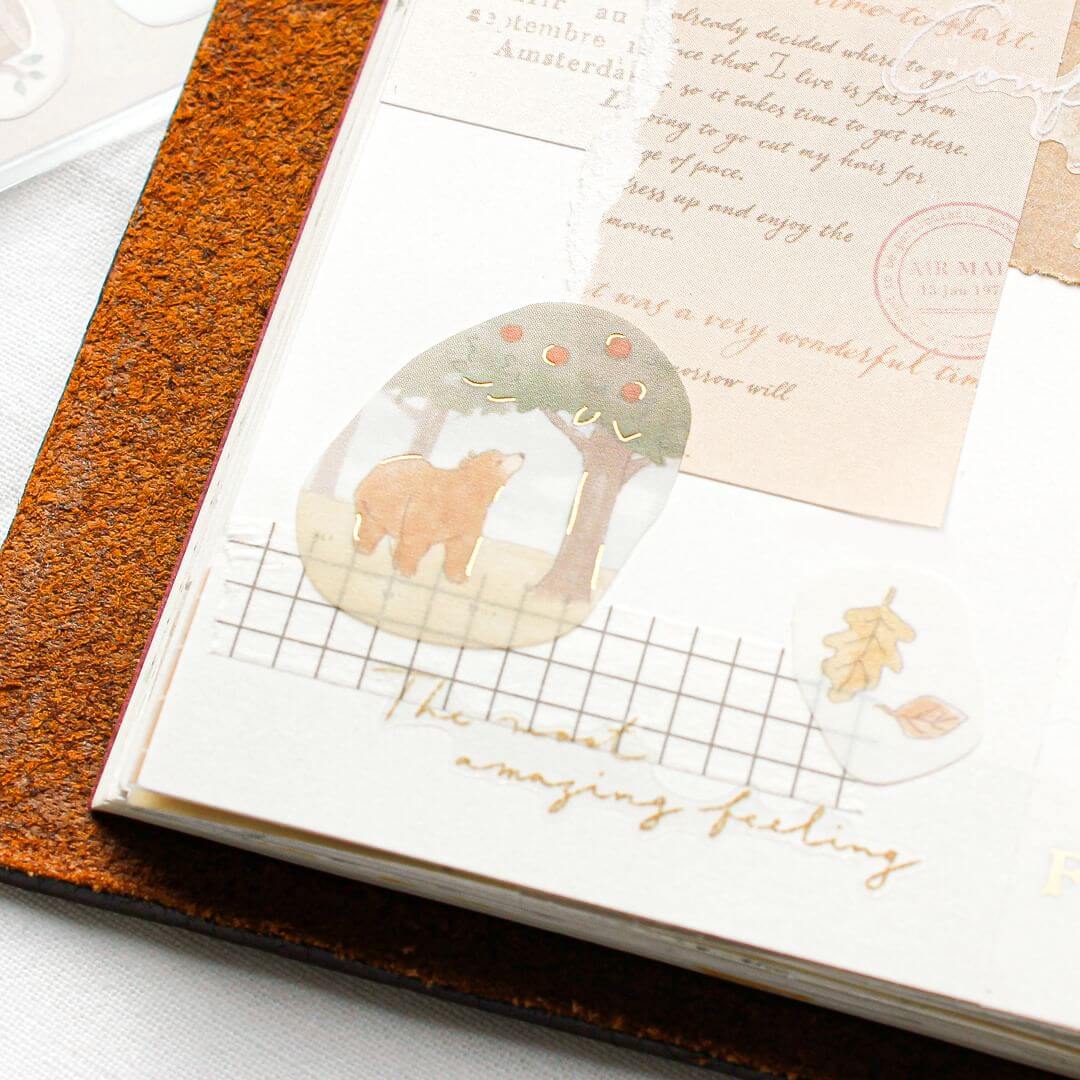 au
septembre
Amsterda
time to start.
already decided where to go
ce that I live is far from
so it takes time to get there.
oing to go cut my hair for
ge of pace.
ress up and enjoy the
mance.
AIR MAI
13 Jan 197
t was a very wonderful tim
orrow will
Comf
The most
amazing feeling